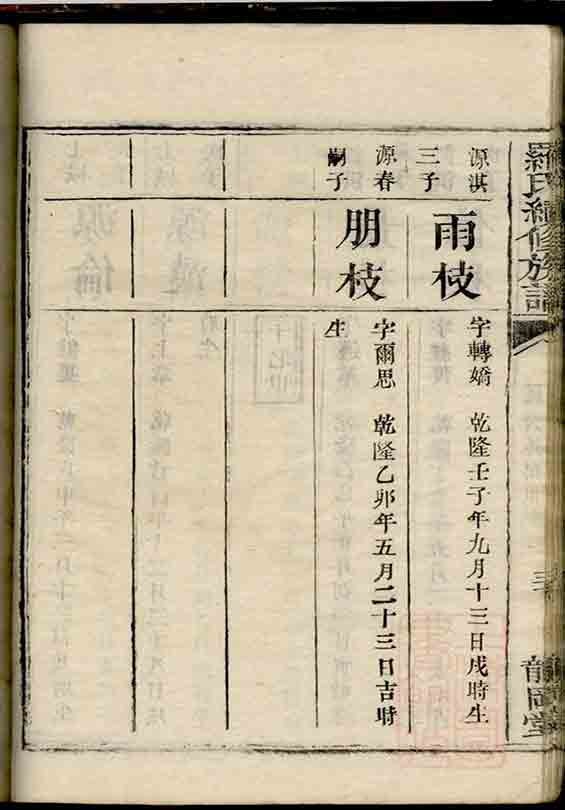 羅氏續修族譜
龍岡堂
源淇
三子
雨枝
字轉嬌 乾隆壬子年九月十三日戌時生
源春
嗣子
朋枝
字爾思 乾隆乙卯年五月二十三日吉時
生